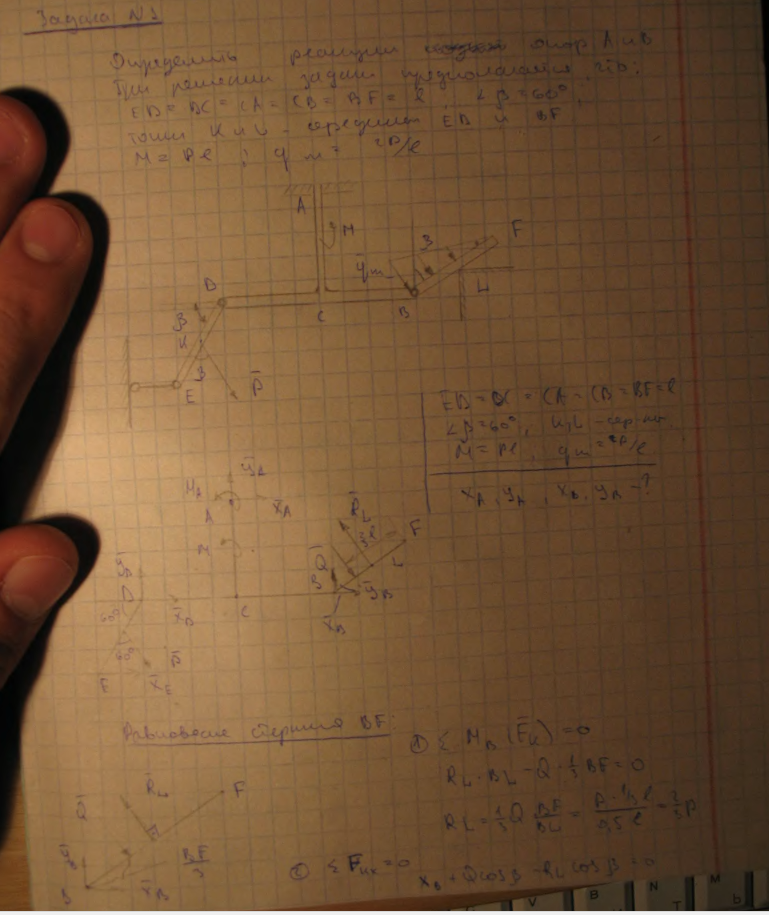 Задача N1
Определить реакции опор A и B
При решении задачи предполагается, что:
ED = DC = CA = CB = BF = l, ∠β = 60°,
точки K и L - середины ED и BF
M = Pl ; qm = 2P/l
A
M
F
β
qm
D
L
C
B
β
K
β
E
P̄
ED = DC = CA = CB = BF = l
∠β = 60°, K, L - сер-ны
M = Pl, qm = 2P/l
ȳA
MA
A
x̄A
M
R̄L
F
Q̄
L
B
ȳB
x̄B
D
x̄D
C
60°
60°
P̄
E
x̄E
Равновесие стержня BF:
① Σ MB (F̄K) = 0
RL · BL - Q · 1/3 BF = 0
RL = 1/3 Q BF/BL = P · 1/3 l / 0,5 l = 2/3 P
R̄L
F
Q̄
BF/3
ȳB
B
x̄B
② Σ Fkx = 0
xB + Q cos β - RL cos β = 0
V
B
N
T
M